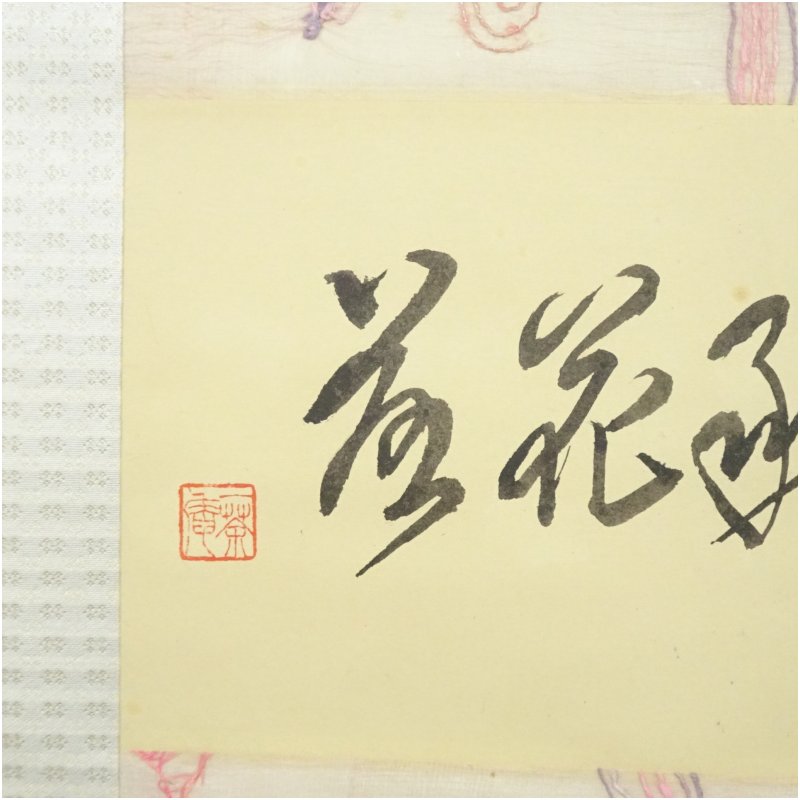 花落
一茶庵